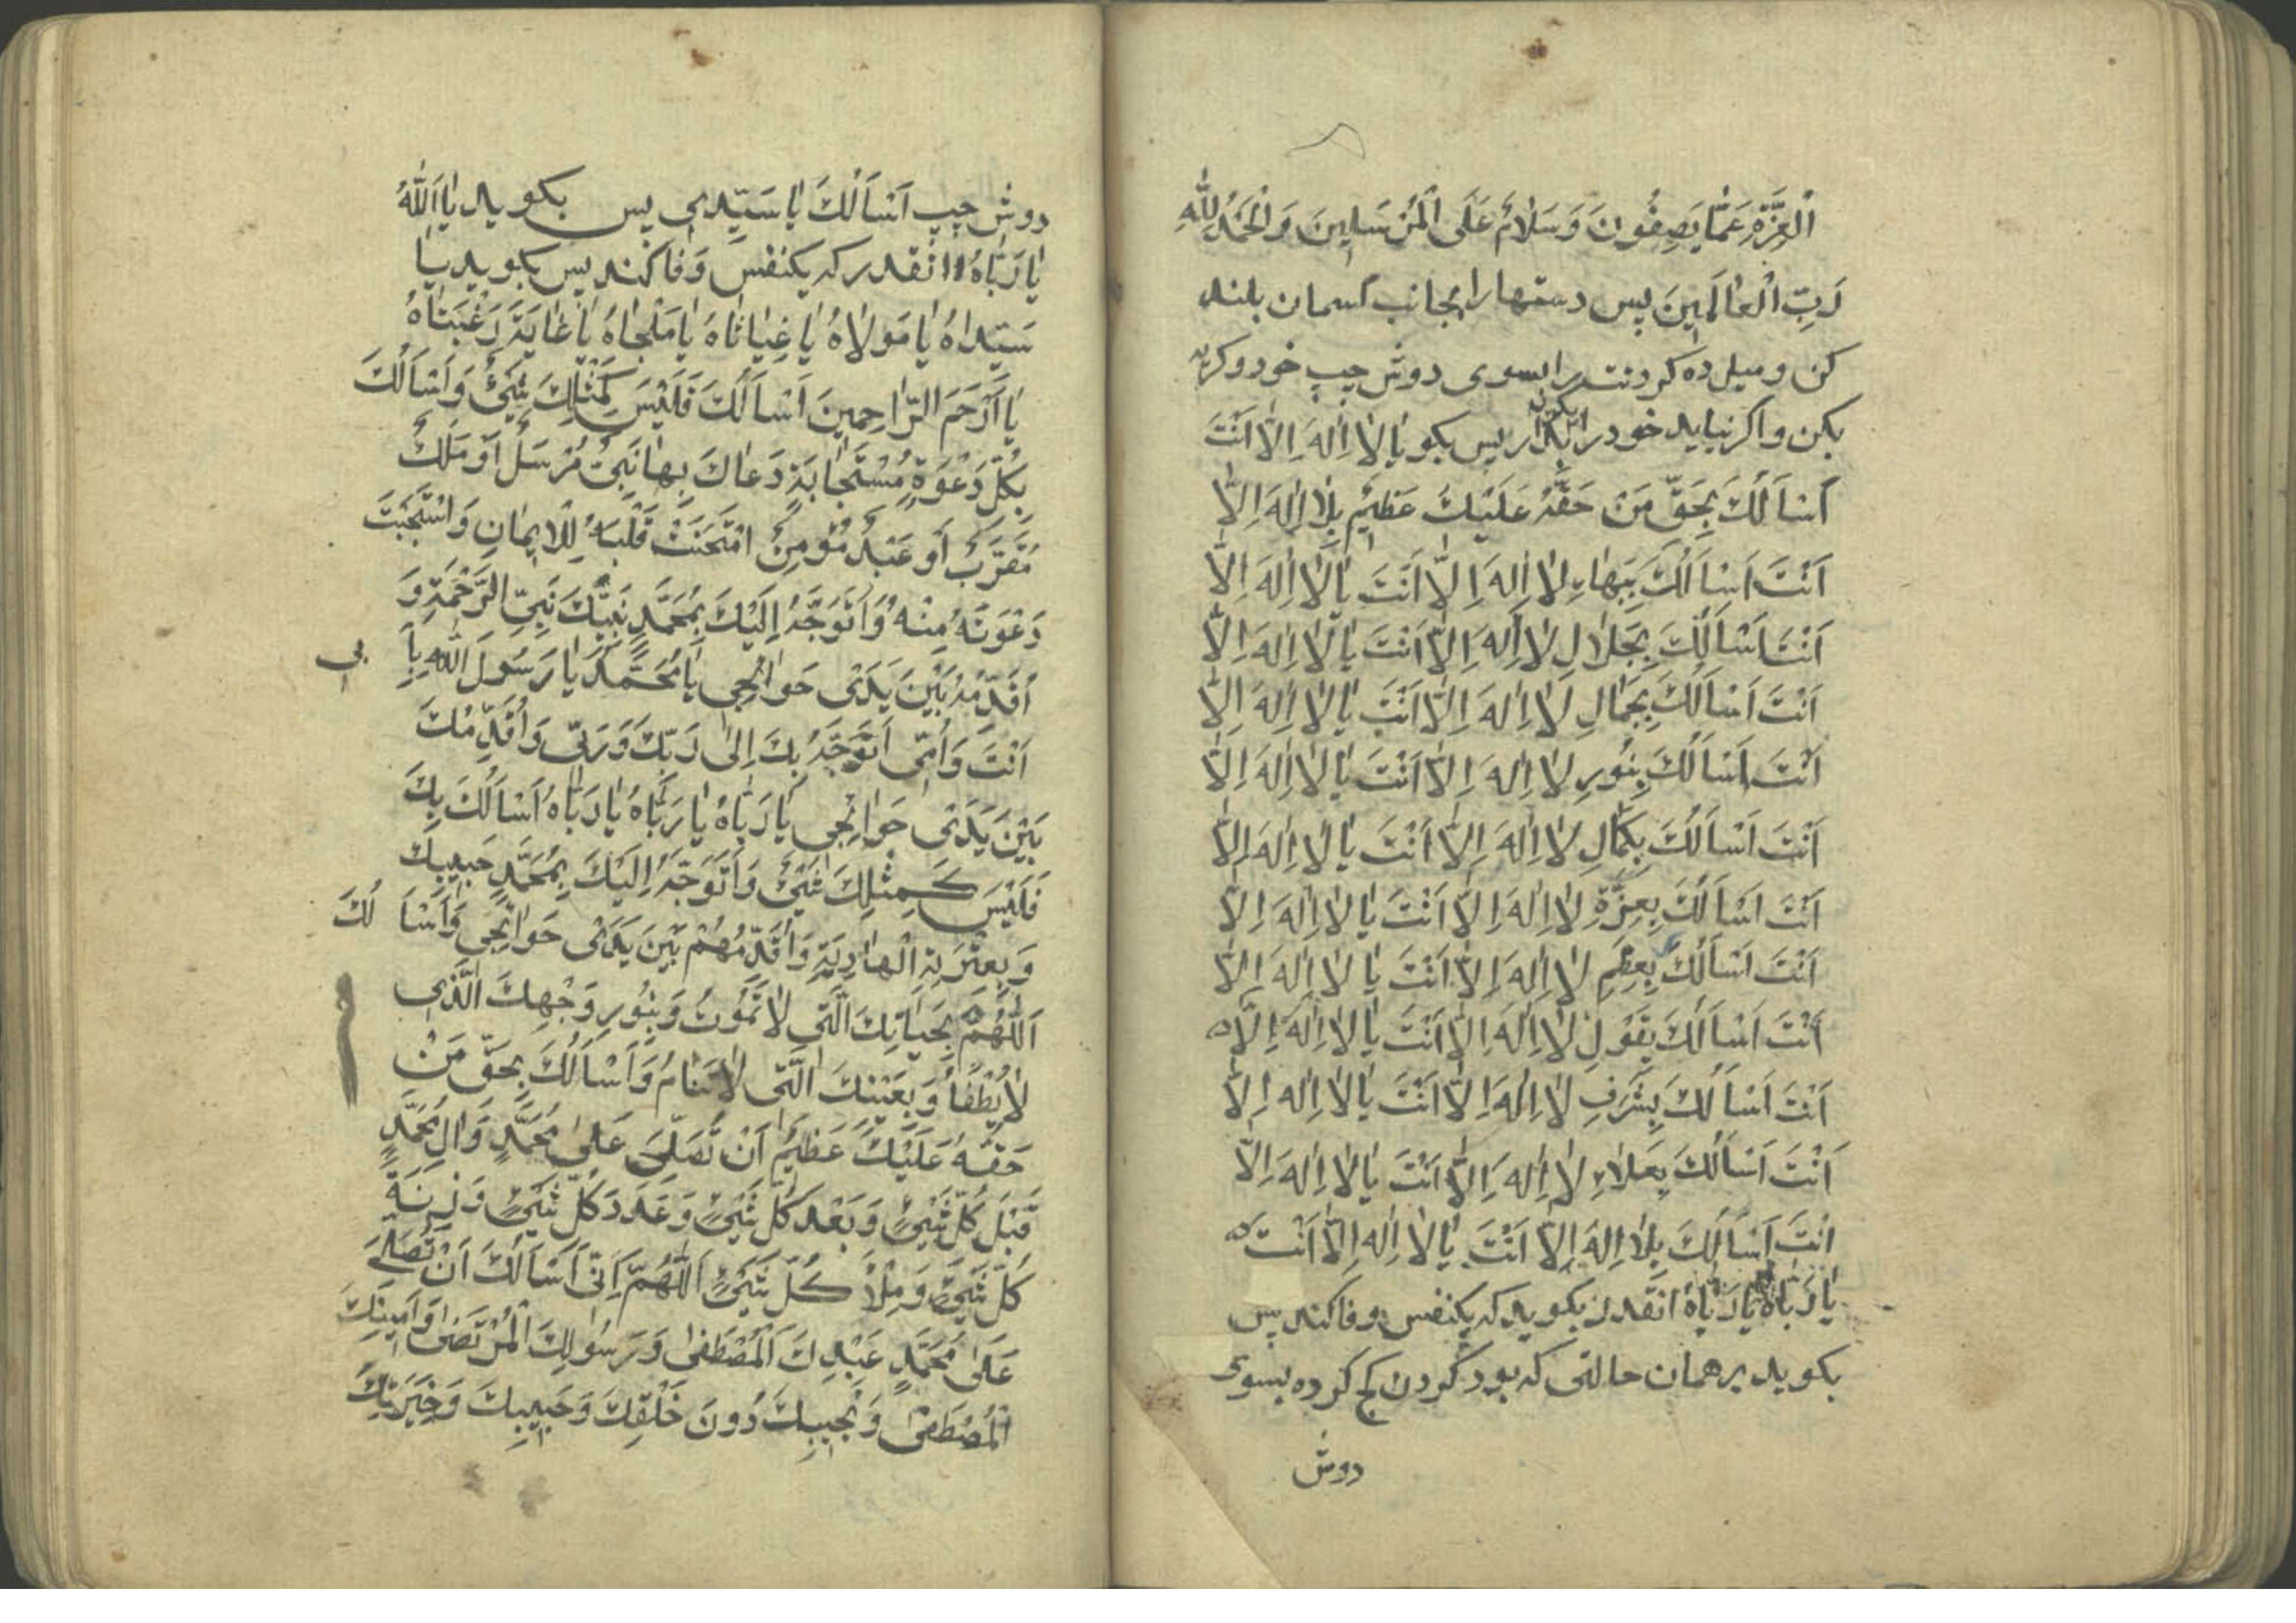 الْعِزَّةِ عَمَّا يَصِفُونَ وَسَلَامٌ عَلَى الْمُرْسَلِينَ وَالْحَمْدُ لِلّٰهِ
رَبِّ الْعَالَمِينَ پس دستها را بجانب آسمان بلند
کن و میل ده گردنت را بسوی دوش چپ خود و گریه
بکن و اگر نیاید خود را بدار پس بگو یَا لَا اِلٰهَ اِلَّا اَنْتَ
اَسْاَلُكَ بِحَقِّ مَنْ حَقُّهُ عَلَيْكَ عَظِيمٌ بِلَا اِلٰهَ اِلَّا
اَنْتَ اَسْاَلُكَ بِبَهَاءِ لَا اِلٰهَ اِلَّا اَنْتَ يَا لَا اِلٰهَ اِلَّا
اَنْتَ اَسْاَلُكَ بِجَلَالِ لَا اِلٰهَ اِلَّا اَنْتَ يَا لَا اِلٰهَ اِلَّا
اَنْتَ اَسْاَلُكَ بِجَمَالِ لَا اِلٰهَ اِلَّا اَنْتَ يَا لَا اِلٰهَ اِلَّا
اَنْتَ اَسْاَلُكَ بِنُورِ لَا اِلٰهَ اِلَّا اَنْتَ يَا لَا اِلٰهَ اِلَّا
اَنْتَ اَسْاَلُكَ بِكَمَالِ لَا اِلٰهَ اِلَّا اَنْتَ يَا لَا اِلٰهَ اِلَّا
اَنْتَ اَسْاَلُكَ بِعِزَّةِ لَا اِلٰهَ اِلَّا اَنْتَ يَا لَا اِلٰهَ اِلَّا
اَنْتَ اَسْاَلُكَ بِعِظَمِ لَا اِلٰهَ اِلَّا اَنْتَ يَا لَا اِلٰهَ اِلَّا
اَنْتَ اَسْاَلُكَ بِقَوْلِ لَا اِلٰهَ اِلَّا اَنْتَ يَا لَا اِلٰهَ اِلَّا
اَنْتَ اَسْاَلُكَ بِشَرَفِ لَا اِلٰهَ اِلَّا اَنْتَ يَا لَا اِلٰهَ اِلَّا
اَنْتَ اَسْاَلُكَ بِعَلَاءِ لَا اِلٰهَ اِلَّا اَنْتَ يَا لَا اِلٰهَ اِلَّا
اَنْتَ اَسْاَلُكَ بِلَا اِلٰهَ اِلَّا اَنْتَ يَا لَا اِلٰه اِلَّا اَنْتَ
يَا رَبَّاهُ يَا رَبَّاهُ انقدر بکوید که یکنفس وفا کند پس
بکوید برهمان حالتی که بود گردن کج کرده بسوی
دوش
دوش چپ اَسْاَلُكَ يَا سَيِّدِى پس بکوید يَا اَللّٰهُ
يَا رَبَّاهُ انقدر که یکنفس وفا کند پس بکوید يَا
سَيِّدَاهُ يَا مَوْلَاهُ يَا غِيَاثَاهُ يَا مَلْجَاهُ يَا غَايَةَ رَغْبَتَاهُ
يَا اَرْحَمَ الرَّاحِمِينَ اَسْاَلُكَ فَلَيْسَ كَمِثْلِكَ شَیْءٌ وَاَسْاَلُكَ
بِكُلِّ دَعْوَةٍ مُسْتَجَابَةٍ دَعَاكَ بِهَا نَبِیٌّ مُرْسَلٌ اَوْ مَلَكٌ
مُقَرَّبٌ اَوْ عَبْدٌ مُؤْمِنٌ امْتَحَنْتَ قَلْبَهُ لِلْاِيمَانِ وَاسْتَجَبْتَ
دَعْوَتَهُ مِنْهُ وَاَتَوَجَّهُ اِلَيْكَ بِمُحَمَّدٍ نَبِيِّكَ نَبِیِّ الرَّحْمَةِ وَ
اُقَدِّمُهُ بَيْنَ يَدَیْ حَوَائِجِی يَا مُحَمَّدُ يَا رَسُولَ اللّٰهِ بِاَبِی
اَنْتَ وَاُمِّی اَتَوَجَّهُ بِكَ اِلٰى رَبِّكَ وَرَبِّی وَاُقَدِّمُكَ
بَيْنَ يَدَیْ حَوَائِجِی يَا رَبَّاهُ يَا رَبَّاهُ يَا رَبَّاهُ اَسْاَلُكَ بِكَ
فَلَيْسَ كَمِثْلِكَ شَیْءٌ وَاَتَوَجَّهُ اِلَيْكَ بِمُحَمَّدٍ حَبِيبِكَ
وَبِعِتْرَتِهِ الْهَادِيَةِ وَاُقَدِّمُهُمْ بَيْنَ يَدَیْ حَوَائِجِی وَاَسْاَلُكَ
اَللّٰهُمَّ بِحَيَاتِكَ الَّتِی لَا تَمُوتُ وَبِنُورِ وَجْهِكَ الَّذِی
لَا يُطْفَأُ وَبِعَيْنِكَ الَّتِی لَا تَنَامُ وَاَسْاَلُكَ بِحَقِّ مَنْ
حَقُّهُ عَلَيْكَ عَظِيمٌ اَنْ تُصَلِّیَ عَلٰى مُحَمَّدٍ وَاٰلِ مُحَمَّدٍ
قَبْلَ كُلِّ شَیْءٍ وَبَعْدَ كُلِّ شَیْءٍ وَعَدَدَ كُلِّ شَیْءٍ وَزِنَةَ
كُلِّ شَیْءٍ وَمِلْاَ كُلِّ شَیْءٍ اَللّٰهُمَّ اِنِّی اَسْاَلُكَ اَنْ تُصَلِّیَ
عَلٰى مُحَمَّدٍ عَبْدِكَ الْمُصْطَفٰى وَرَسُولِكَ الْمُرْتَضٰى وَاَمِينِكَ
الْمُصْطَفٰى وَنَجِيبِكَ دُونَ خَلْقِكَ وَحَبِيبِكَ وَخِيَرَتِكَ